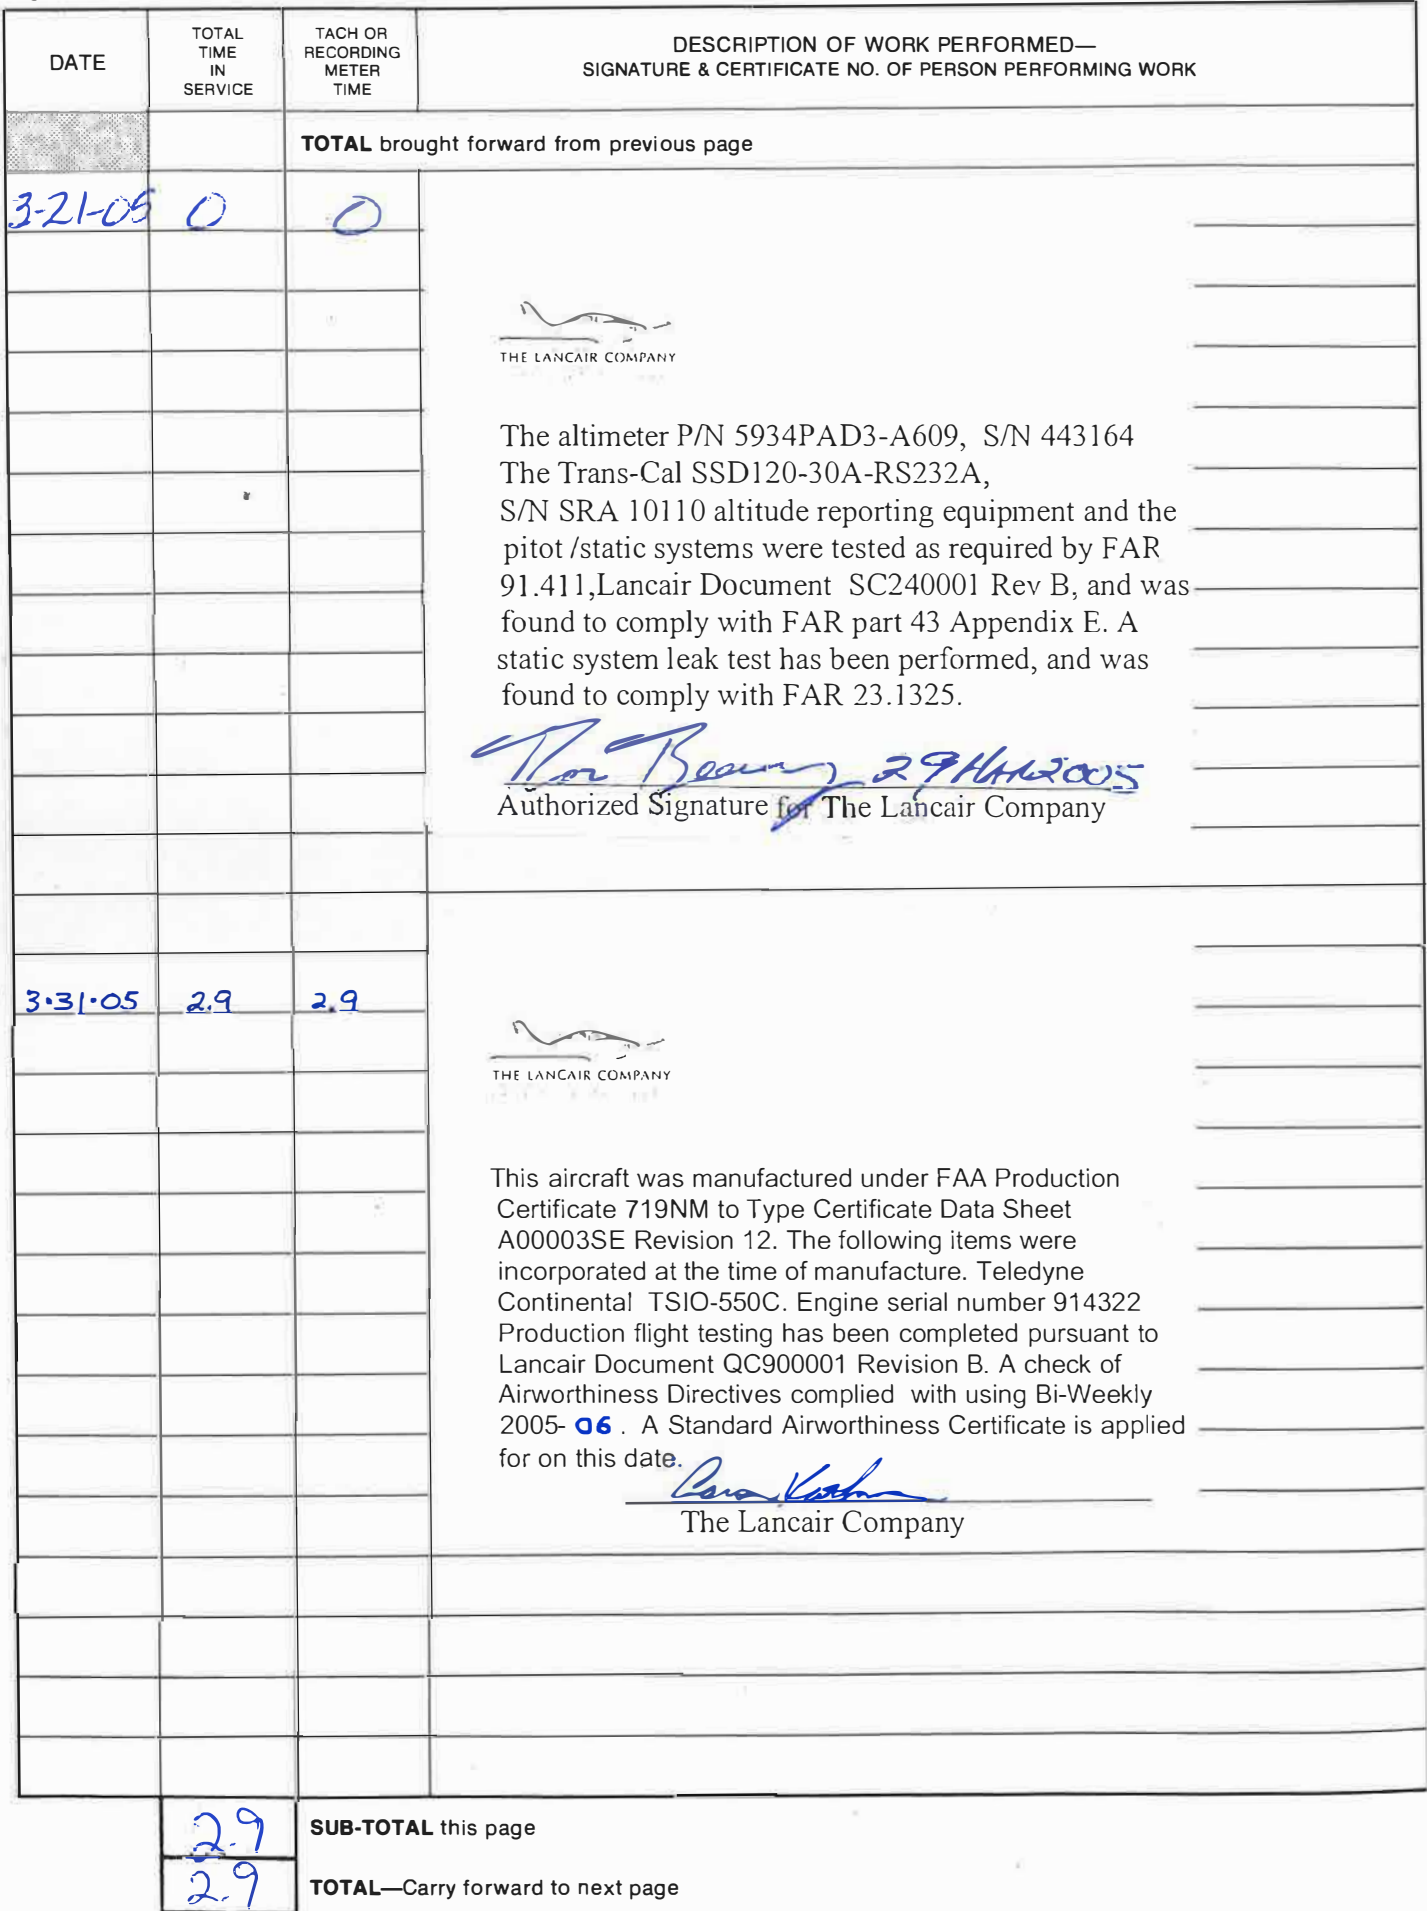 DATE
TOTAL
TIME
IN
SERVICE
TACH OR
RECORDING
METER
TIME
DESCRIPTION OF WORK PERFORMED—
SIGNATURE & CERTIFICATE NO. OF PERSON PERFORMING WORK
TOTAL brought forward from previous page
3-21-05 0 0
THE LANCAIR COMPANY
The altimeter P/N 5934PAD3-A609, S/N 443164
The Trans-Cal SSD120-30A-RS232A,
S/N SRA 10110 altitude reporting equipment and the
pitot /static systems were tested as required by FAR
91.411,Lancair Document SC240001 Rev B, and was
found to comply with FAR part 43 Appendix E. A
static system leak test has been performed, and was
found to comply with FAR 23.1325.
29MAR2005
Authorized Signature for The Lancair Company
3·31·05 2.9 2.9
THE LANCAIR COMPANY
This aircraft was manufactured under FAA Production
Certificate 719NM to Type Certificate Data Sheet
A00003SE Revision 12. The following items were
incorporated at the time of manufacture. Teledyne
Continental TSIO-550C. Engine serial number 914322
Production flight testing has been completed pursuant to
Lancair Document QC900001 Revision B. A check of
Airworthiness Directives complied with using Bi-Weekly
2005- 06 . A Standard Airworthiness Certificate is applied
for on this date.
The Lancair Company
2.9 SUB-TOTAL this page
2.9 TOTAL—Carry forward to next page